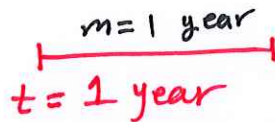 m=1 year
t = 1 year